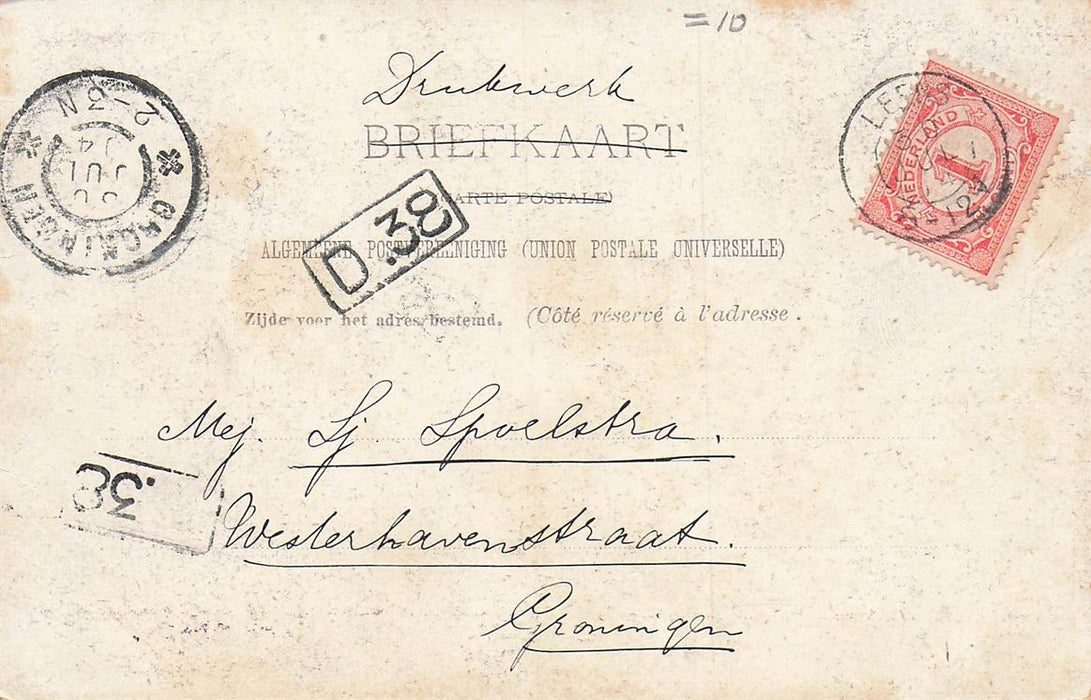 =10
Drukwerk
BRIEFKAART
CARTE POSTALE)
ALGEMEENE POSTVEREENIGING (UNION POSTALE UNIVERSELLE)
Zijde voor het adres bestemd. (Côté réservé à l'adresse.
D.38
GRONINGEN
2-3N
JUL
04
LEENS
NEDERLAND
1
Mej. Sj Spoelstra.
.38
Westerhavenstraat.
Groningen